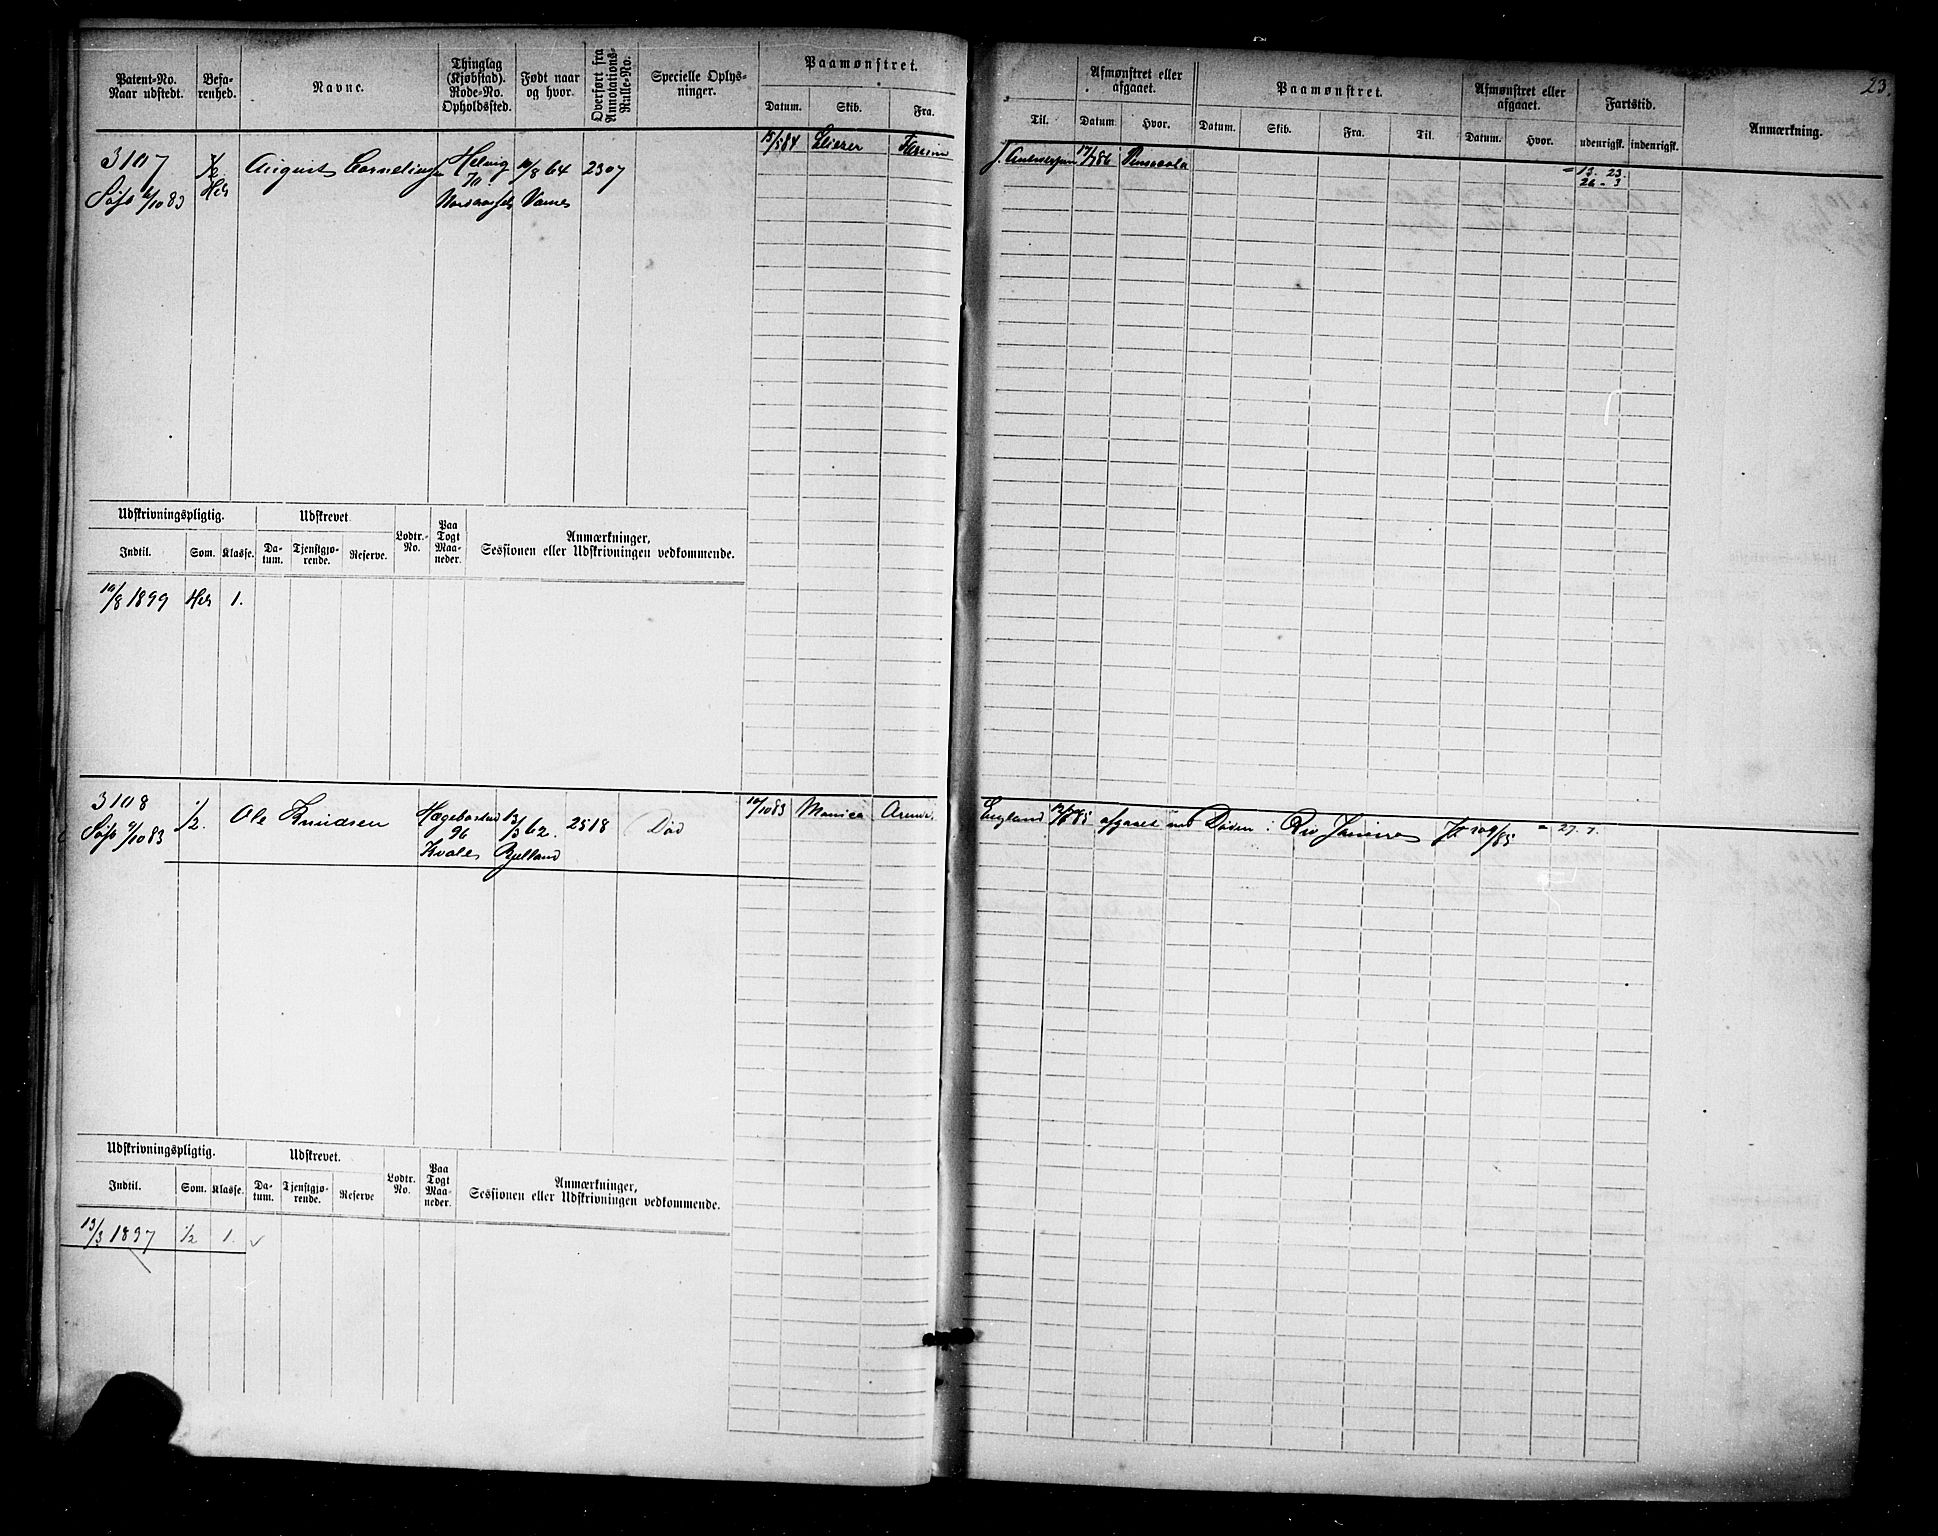 23.
Patent-No. Naar udstedt.
Befa-renhed.
Navne.
Thinglag (Kjøbstad). Rode-No. Opholdssted.
Født naar og hvor.
Overført fra Annotations-Rulle-No.
Specielle Oplys-ninger.
Paamønstret.
Datum. Skib. Fra.
Til.
Afmønstret eller afgaaet.
Datum. Hvor.
Paamønstret.
Datum. Skib. Fra. Til.
Afmønstret eller afgaaet.
Datum. Hvor.
Fartstid.
udenrigsk. indenrigsk.
Anmærkning.
3107 1/2 August 10/8 64 2307 15/5 84 f. Antwerpen 17/7 86 Pensacola 13. 23.
6/10 83 Hel Vanse 26 - 3
Udskrivningspligtig. Udskrevet. Lodtr.-No. Paa Togt Maa-neder. Anmærkninger, Sessionen eller Udskrivningen vedkommende.
Indtil. Som. Klasse. Da-tum. Tjenstgjø-rende. Reserve.
10/8 1899 Hel 1.
3108 1/2. Ole Knudsen Hægebostad 13/3 62. 2518 Død 10/10 83 Monica England afgaaet ved Døden i Rio Janeiro = 27. 7.
9/10 83 96
Bjelland
Udskrivningspligtig. Udskrevet. Lodtr. No. Paa Togt Maa-neder. Anmærkninger, Sessionen eller Udskrivningen vedkommende.
Indtil. Som. Klasse. Da-tum. Tjenstgjø-rende. Reserve
13/3 1897 1/2 1.